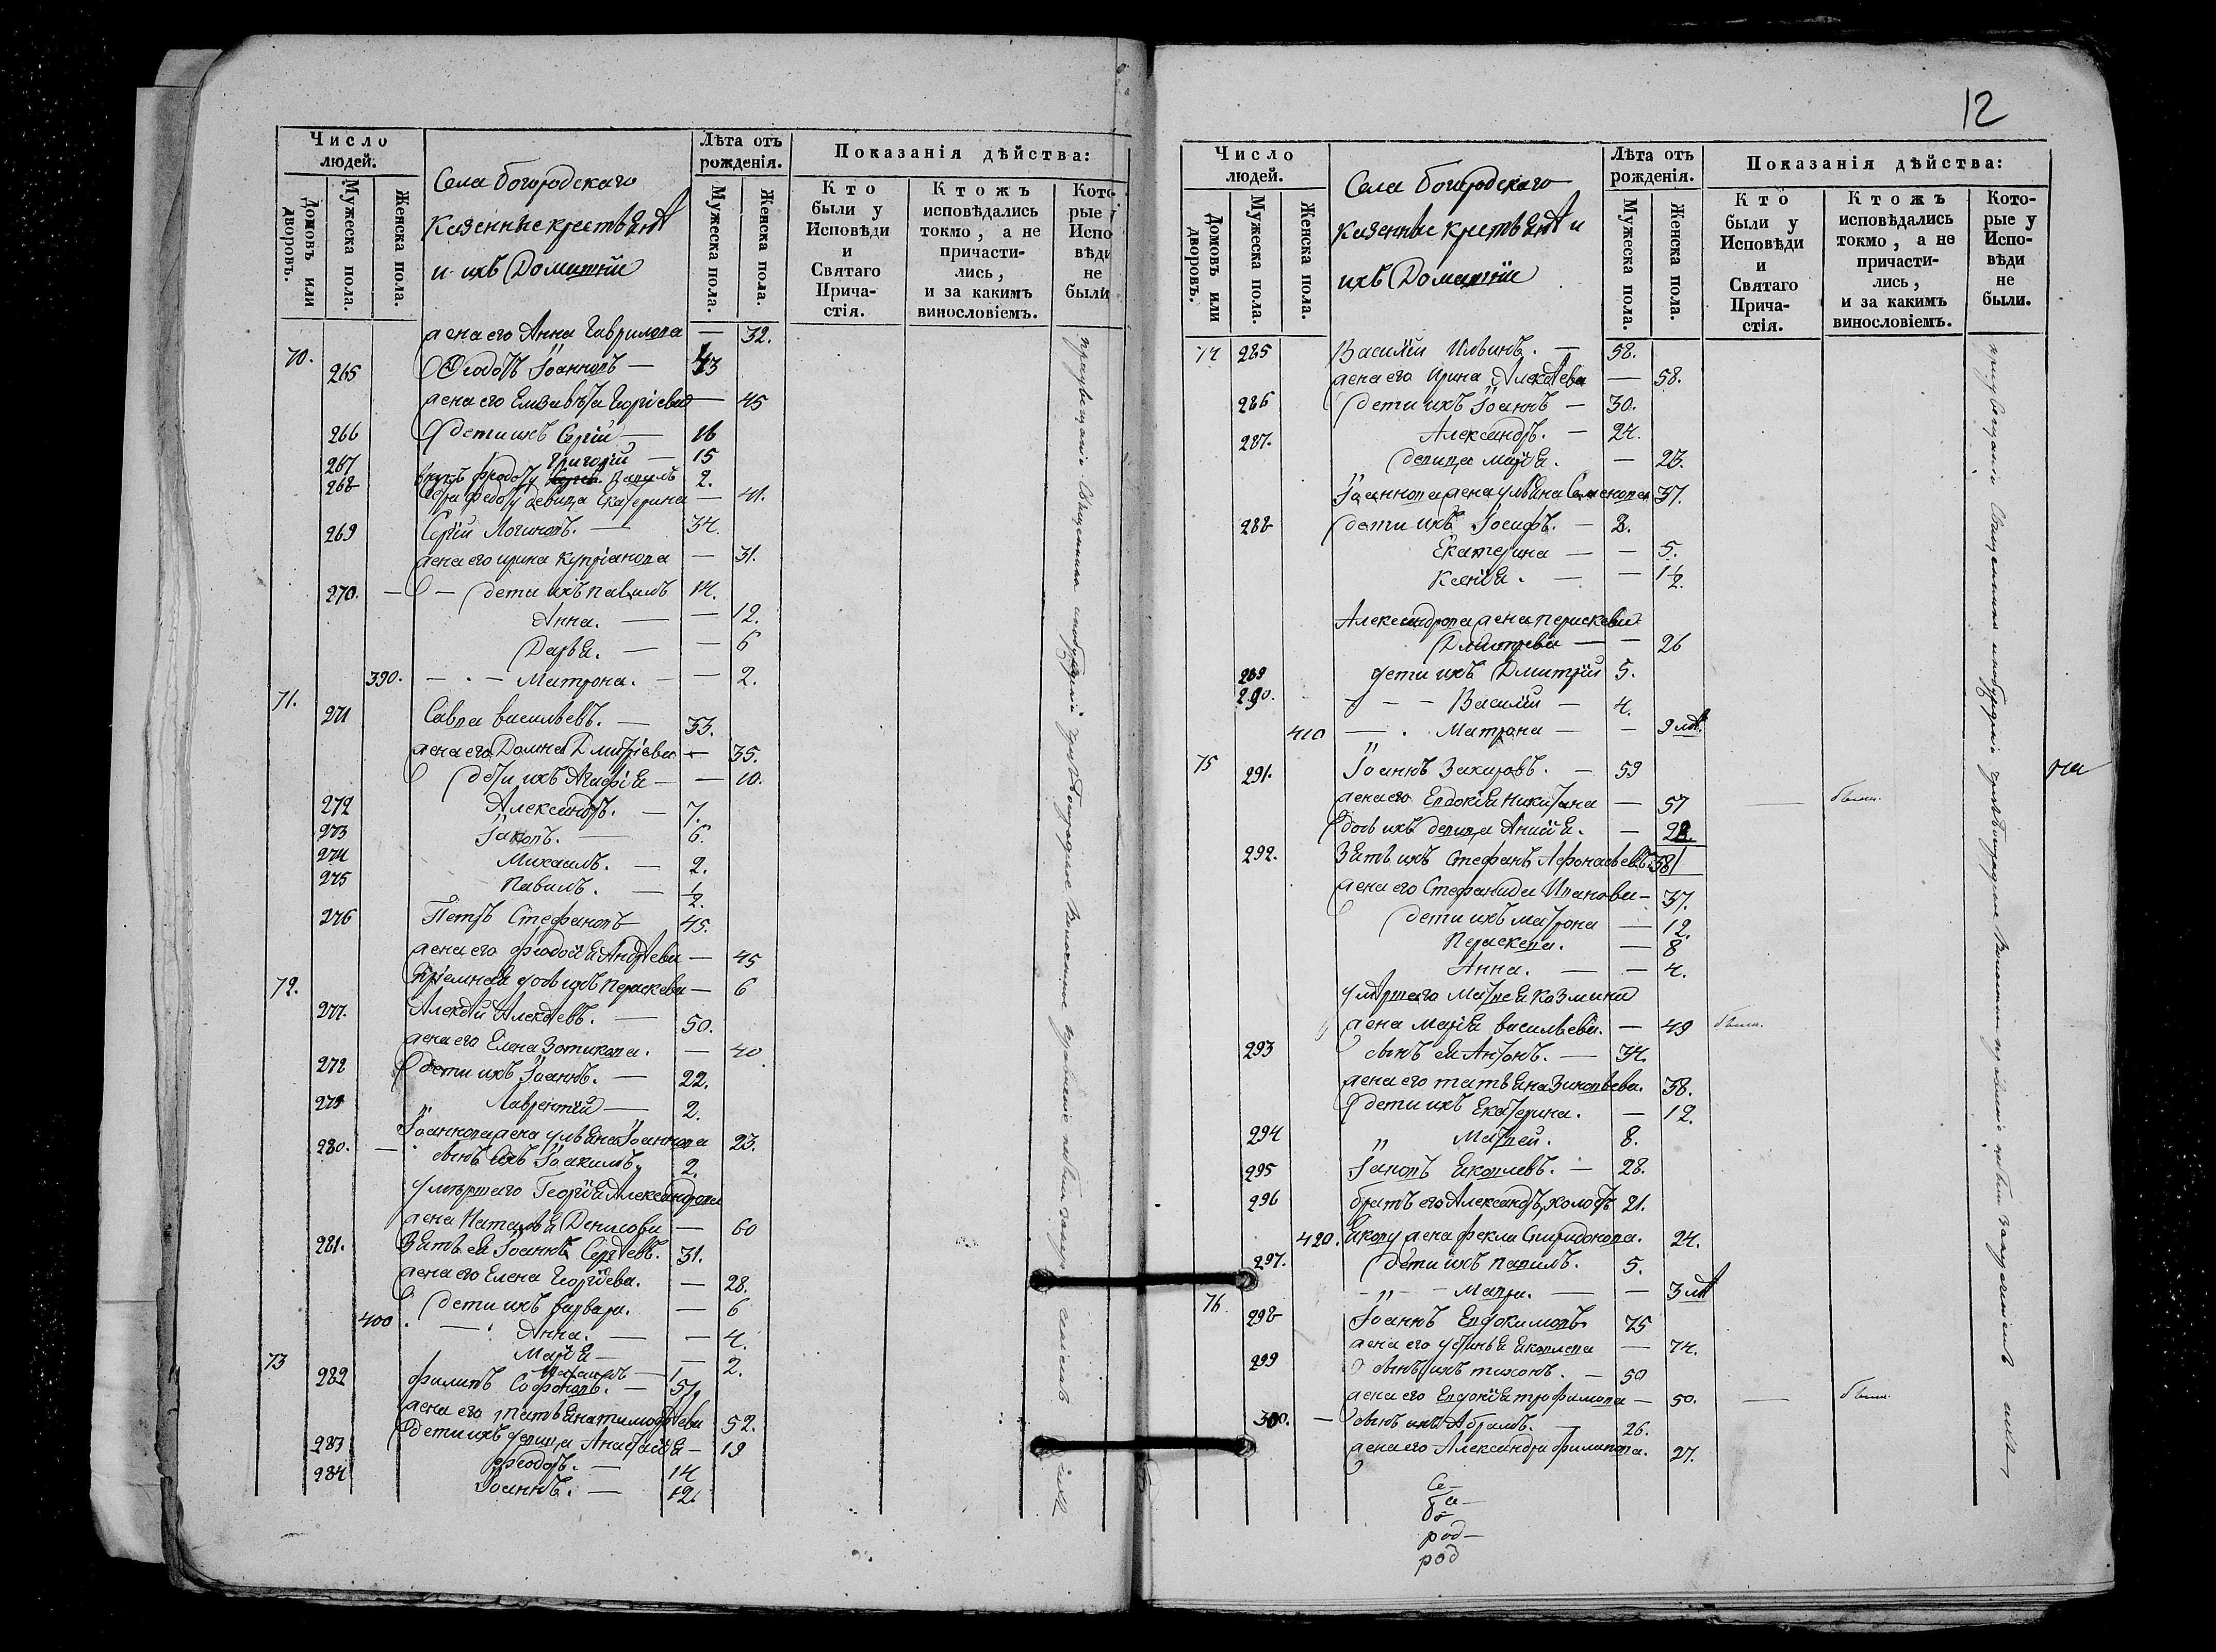 Число людей.
Домовъ или дворовъ.
Мужеска пола.
Женска пола.
Села Богородскаго
казенные крестьяня
и ихъ Домашнiи
Лѣта отъ рожденiя.
Мужеска пола.
Женска пола.
Показанiя дѣйства:
Кто были у Исповѣди и Святаго Прича-стiя.
Ктожъ исповѣдались токмо, а не причасти-лись, и за какимъ винословiемъ.
Кото-рые у Испо вѣди не были
жена его Анна Гаврилова — 32.
70. 265 Ѳеодоръ Iоанновъ — 43
жена его Елизавета Георгiева — 45
266 дети ихъ Сергiй — 16
267 Григорiй — 15
268 внукъ Феодору Данилъ 2.
девица Екатерина — 41.
269 Сергiй Логиновъ. — 34.
жена его ирина Купрiанова — 31.
270. — дети ихъ павилъ 14.
Анна. — — 12.
Дарья. — — 6
390. — Матрона. — — 2.
71. 271 Савва васильевъ. — 33.
жена его Домна Дмитрiева — 35.
дети ихъ Агафiя — — 10.
272 Александръ. — 7.
273 Iаковъ. — 6.
274 Михаилъ. — 2.
275 Павилъ. — 1/2.
276 Петръ Стефановъ 45.
жена его Феодосiя Андреева — 45
прiемная дочь ихъ Параскева — 6
72. 277. Алексей Алексеевъ. — 50.
жена его Елена Зотикова. — 40
278 дети ихъ Iоаннъ. — 22.
279 Лаврентiй — 2.
Iоаннова жена ульяна Iоаннова 23.
280. — сынъ ихъ Iоакимъ, 2.
умершаго Георгiя Александрова
жена Наталья Денисова — 60
281. Зять ея Iоаннъ Сергеевъ. 31.
жена его Елена Георгiева. — 28.
дети ихъ варвара. — 6
400. — Анна. — — 4.
Марiя — — 2.
73 282 Филипъ Софоновъ. — 51,
жена его татьяна тимофеева 52.
283 дети ихъ девица Анастасiя — 19
Феодоръ. — 14
284 Iоаннъ. — 12.
12
Число людей.
Домовъ или дворовъ.
Мужеска пола.
Женска пола.
Села Богородскаго
казенные крестьяня и
ихъ Домашнiи
Лѣта отъ рожденiя.
Мужеска пола.
Женска пола.
Показанiя дѣйства:
Кто были у Исповѣди и Святаго Прича-стiя.
Ктожъ исповѣдались токмо, а не причасти-лись, и за какимъ винословiемъ.
Кото-рые у Испо-вѣди не были.
74 285 Василiй Ильинъ. — 58.
жена его Ирина Алексеева — 58.
286 дети ихъ Iоаннъ — 30.
287. Александръ. — 24.
девица марiя. — 23.
Iоаннова жена ульяна Семенова 37.
288 дети ихъ Iосифъ. — 2.
Екатерина — — 5.
Ксенiя. — — 1 1/2
Александрова жена пераскева
Дмитрева — — 26
289 дети ихъ Дмитрiй 5.
290. — — Василiй — 4.
410 — . Матрона — — 9 мѣ.
75 291. Iоаннъ Захаровъ. — 59
жена его Евдокiя Никитина — 57 — была.
дочь ихъ девица Анисiя. — 28
292. Зять ихъ Стефанъ Афонасьевъ 38
жена его Стефанида Иванова — 37.
дети ихъ матрона — 12.
Пераскева. — 8
Анна. — — 4.
умершаго Матвея Козмина
жена Марiя васильева. — 49 была.
293 сынъ ея Антонъ. — 34.
жена его татьяна Зиновьева. 38.
дети ихъ Екатерина. — 12.
294 Матвей. 8.
295 Iаковъ Яковлевъ. — 28.
296 братъ его Александръ, холостъ 21.
420. Якову жена фекла Спиридонова. 24.
297. дети ихъ павилъ. 5.
— Мавра. — — 3 мѣ
76 298 Iоаннъ Евдокимовъ 75
жена его устинья Яковлева — 74.
299 сынъ ихъ тихонъ. — 50
жена его Евдокiя трофимова — 50. — была.
300. — сынъ ихъ Абрамъ. — 26.
жена его Александра филипова. 27.
Се-
ба-
бо
род-
род